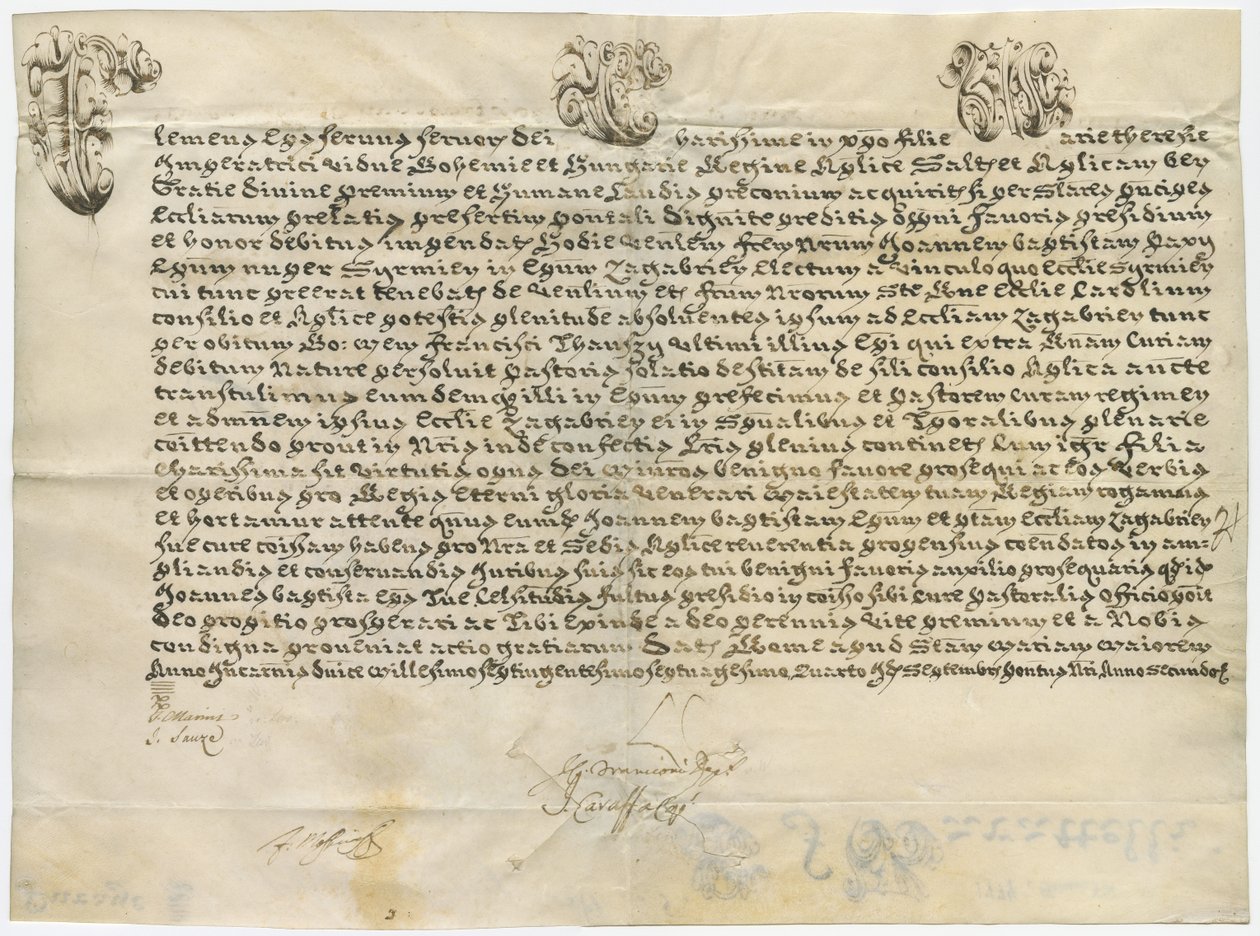 Clemens Eps servus servor Dei Charissime in Xpo filie Marie Theresie
Imperatrici Vidue Bohemie et Hungarie Regine Aplice Saltem et Aplicam ben
Gratie Divine premium et Humane Laudis preconium acquirit si per Slares pncipes
Eccliarum prelatis presertim pontali dignite preditis oppni favoris presidium
et honor debitus impendat Hodie Venlem frem Nrum Joannem baptistam Paxy
Epum nuper Syrmien in Epum Zagabrien Electum a Vinculo quo Ecclie Syrmien
cui tunc preerat tenebat de Venlium et frum Nrorum Ste Rne Ecclie Cardlium
consilio et Aplice potestis plenitude absolventes ipsum ad Eccliam Zagabrien tunc
per obitum Bo: Mem Francisci Thauszy Ultimi illius Epi qui extra Rnam Curiam
debitum Nature persolvit pastoris solatio destitam de sili consilio Aplica aucte
transtulimus eumdemq illi in Epum prefecimus et Pastorem curam regimen
et admnem ipsius Ecclie Zagabrien ei in Spualibus et Tporalibus plenarie
coittendo prout in Nris inde confectis Lris plenius continet Cum igr Filia
Charissima sit Virtutis opus Dei Minros benigno favore prosequi ac eos Verbis
et operibus pro Regis eterni gloria Venerari Maiestatem tuam Regiam rogamus
et hortamur attente qnus eumd Joannem baptistam Epum et ptam Eccliam Zagabrien
sue cure coissam habens pro Nra et Sedis Aplice reverentia propensius coendatos in am=
pliandis et conservandis Juribus suis sic eos tui benigni favoris auxilio prosequaris qd id
Joannes baptista Eps Tue Celsitudis fultus presidio in coisso sibi Cure Pastoralis Officio poit
Deo propitio prosperari ac Tibi Exinde a Deo perennis Vite premium et a Nobis
condigna proveniat actio gratiarum Dat Rome apud Stam Mariam Maiorem
Anno Incarnis dnice Millesimo septingentesimo septuagesimo, Quarto Id Septembr Pontus Nri Anno Secundo
P. Marini
J. Sauze
J. Caraffa